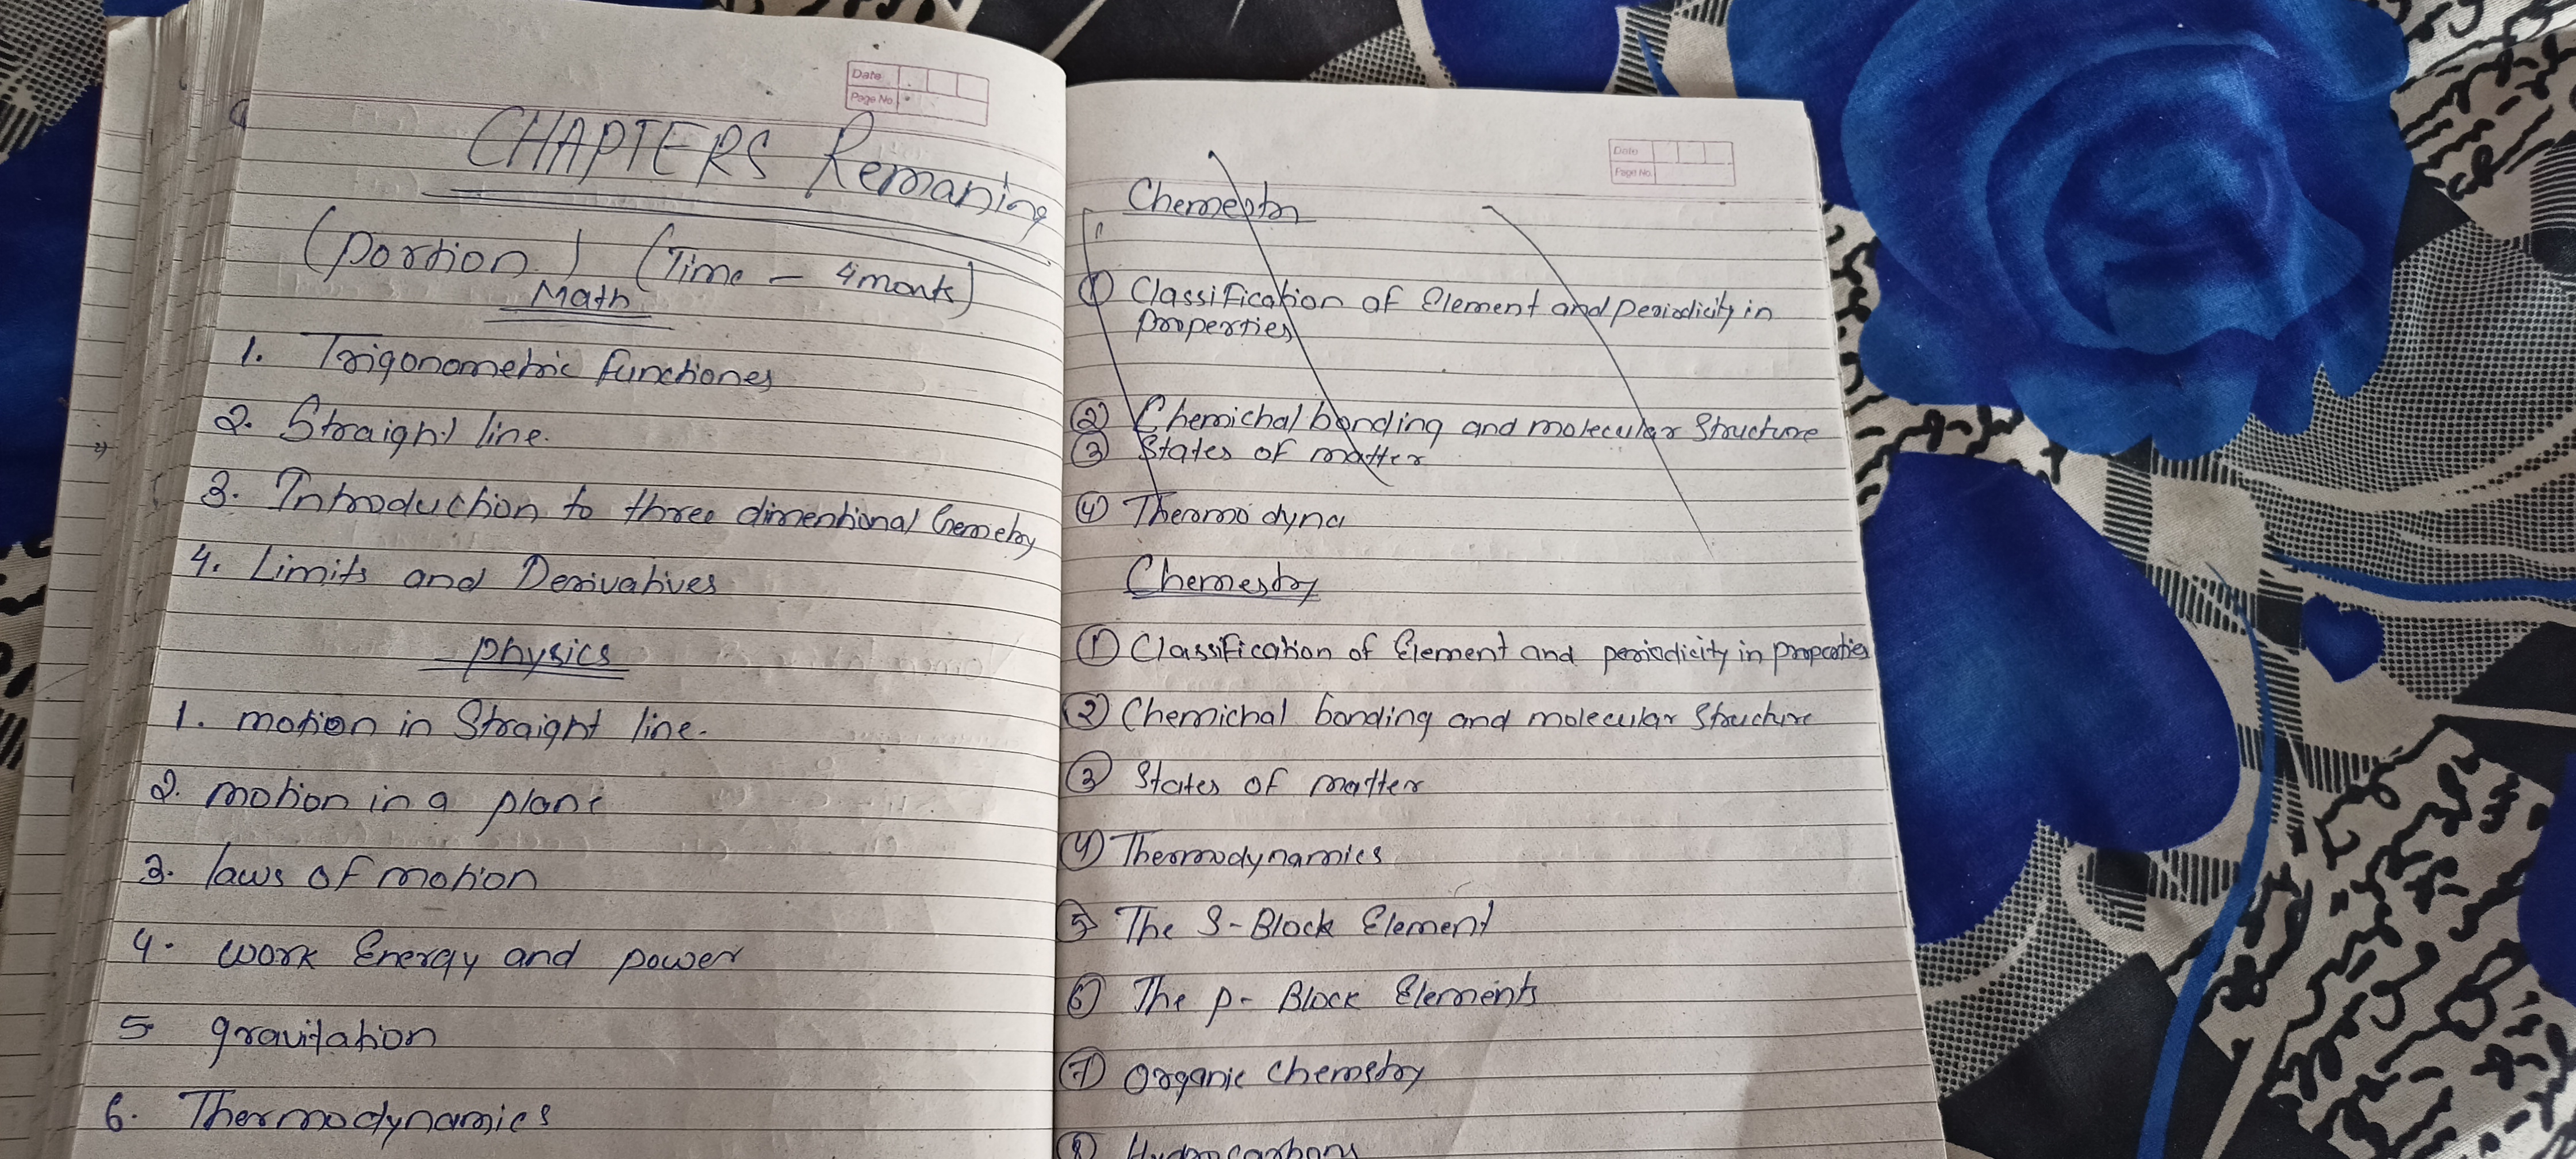 Date
Page No.
CHAPTERS Remaning
(portion) (Time - 4 month)
Math
1. Trigonometric functiones
2. Straight line.
3. Introduction to three dimentional Geometry
4. Limits and Derivatives
physics
1. motion in Straight line.
2. motion in a plane
3. laws of motion
4. work Energy and power
5 gravitation
6. Thermodynamics
Date
Page No.
Chemestr
① Classification of Element and periodicity in
properties
② Chemichal bonding and molecular Structure
③ States of matter
④ Thermodyna
Chemestry
① Classification of Element and periodicity in properties
② Chemichal bonding and molecular Structure
③ States of matter
④ Thermodynamics
⑤ The S-Block Element
⑥ The p-Block Elements
⑦ Organic Chemestry
⑧ Hydrocarbons